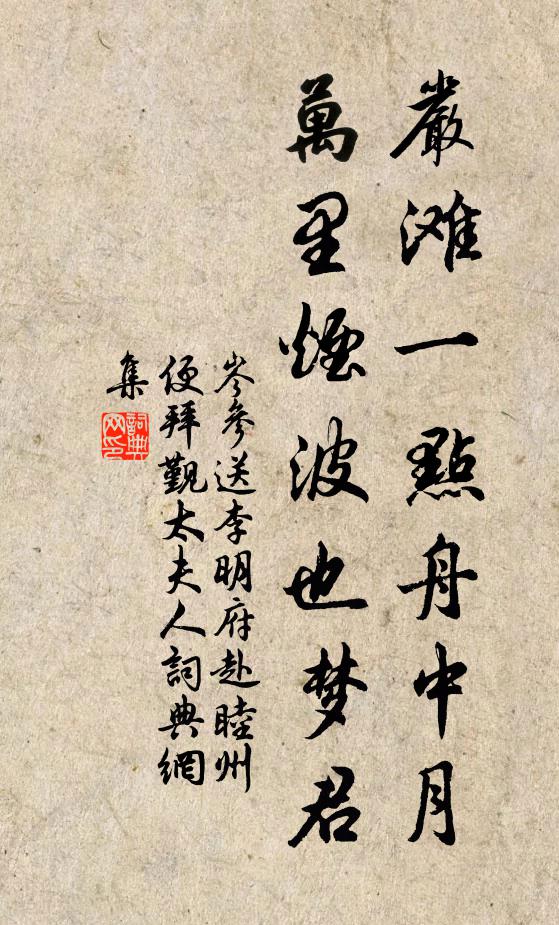 嚴滩一點舟中月
萬里煙波也梦君
岑參送李明府赴睦州
便拜觐太夫人詞典網
集
詞典
网印